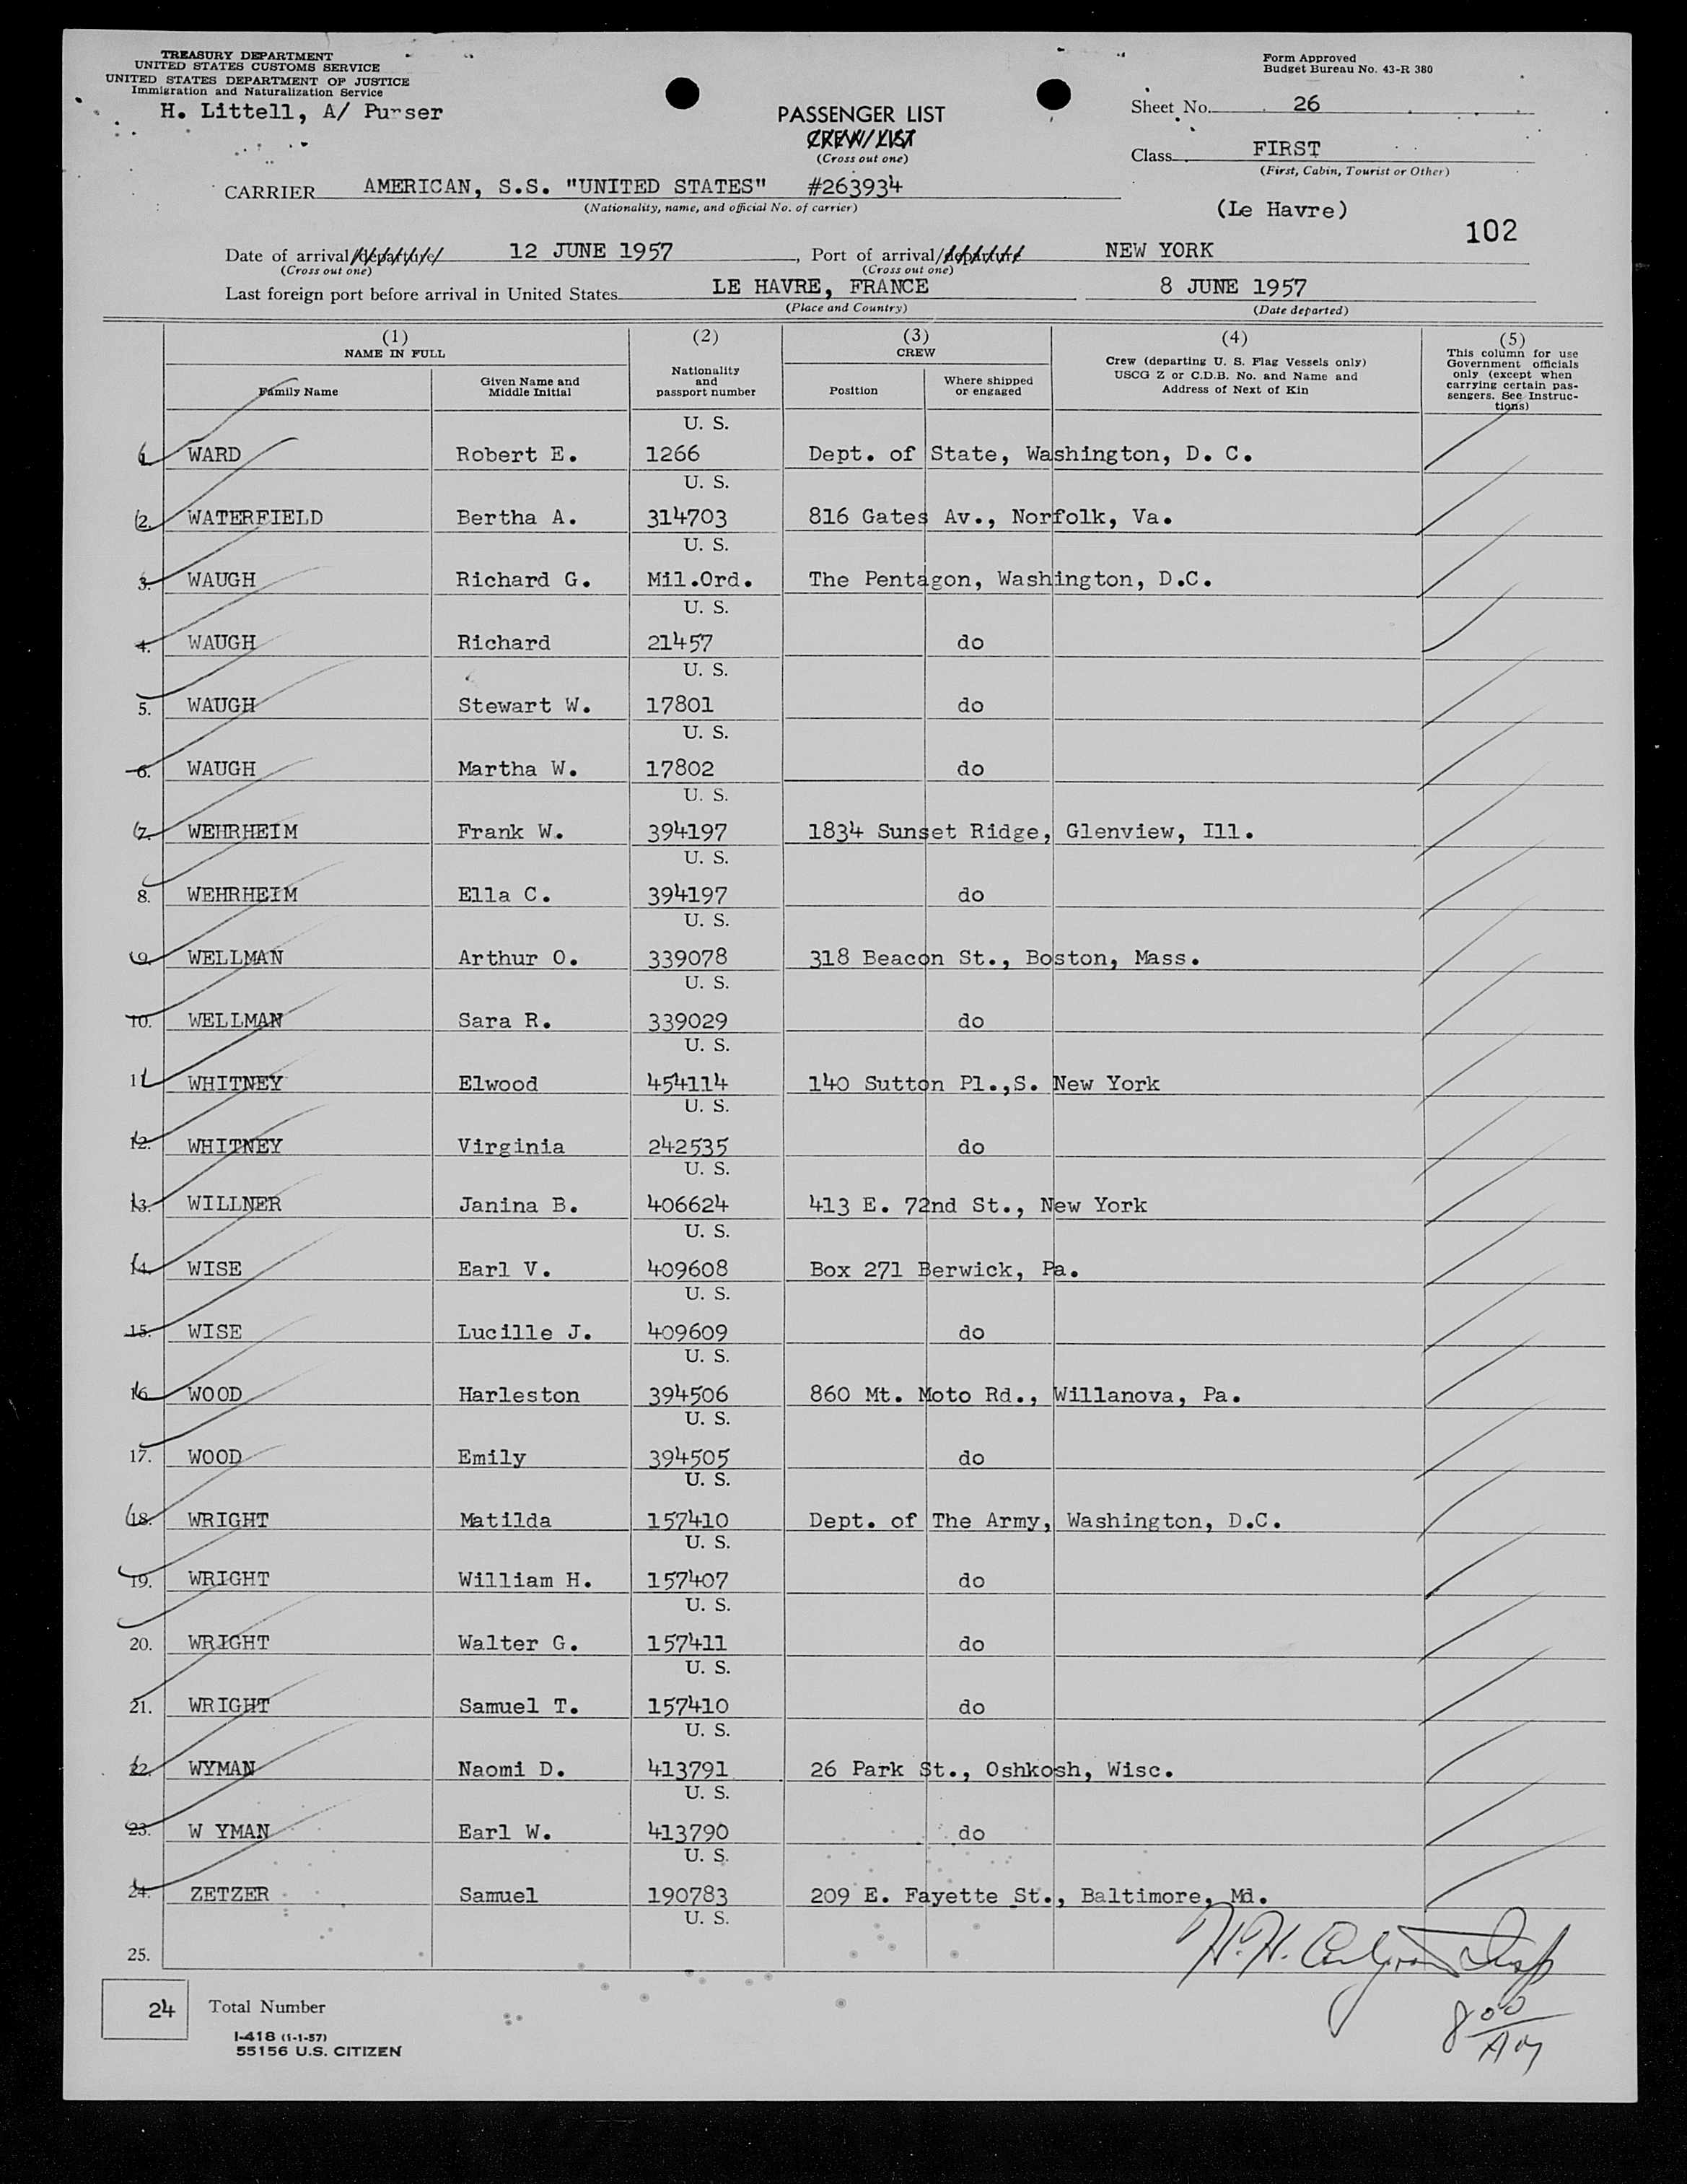 TREASURY DEPARTMENT
UNITED STATES CUSTOMS SERVICE
UNITED STATES DEPARTMENT OF JUSTICE
Immigration and Naturalization Service
H. Littell, A/ Purser
PASSENGER LIST
CREW/LIST
(Cross out one)
Form Approved
Budget Bureau No. 43-R 380
Sheet No. 26
Class FIRST
(First, Cabin, Tourist or Other)
CARRIER AMERICAN, S.S. "UNITED STATES" #263934
(Nationality, name, and official No. of carrier)
(Le Havre)
102
Date of arrival/departure/ 12 JUNE 1957, Port of arrival/departure NEW YORK
(Cross out one) (Cross out one)
Last foreign port before arrival in United States LE HAVRE, FRANCE 8 JUNE 1957
(Place and Country) (Date departed)
(1) (2) (3) (4) (5)
NAME IN FULL
Family Name
Given Name and
Middle Initial
Nationality
and
passport number
CREW
Position
Where shipped
or engaged
Crew (departing U. S. Flag Vessels only)
USCG Z or C.D.B. No. and Name and
Address of Next of Kin
This column for use
Government officials
only (except when
carrying certain pas-
sengers. See Instruc-
tions)
U. S.
1. WARD Robert E. 1266 Dept. of State, Washington, D. C.
U. S.
2. WATERFIELD Bertha A. 314703 816 Gates Av., Norfolk, Va.
U. S.
3. WAUGH Richard G. Mil.Ord. The Pentagon, Washington, D.C.
U. S.
4. WAUGH Richard 21457 do
U. S.
5. WAUGH Stewart W. 17801 do
U. S.
6. WAUGH Martha W. 17802 do
U. S.
7. WEHRHEIM Frank W. 394197 1834 Sunset Ridge, Glenview, Ill.
U. S.
8. WEHRHEIM Ella C. 394197 do
U. S.
9. WELLMAN Arthur O. 339078 318 Beacon St., Boston, Mass.
U. S.
10. WELLMAN Sara R. 339029 do
U. S.
11. WHITNEY Elwood 454114 140 Sutton Pl.,S. New York
U. S.
12. WHITNEY Virginia 242535 do
U. S.
13. WILLNER Janina B. 406624 413 E. 72nd St., New York
U. S.
14. WISE Earl V. 409608 Box 271 Berwick, Pa.
U. S.
15. WISE Lucille J. 409609 do
U. S.
16. WOOD Harleston 394506 860 Mt. Moto Rd., Willanova, Pa.
U. S.
17. WOOD Emily 394505 do
U. S.
18. WRIGHT Matilda 157410 Dept. of The Army, Washington, D.C.
U. S.
19. WRIGHT William H. 157407 do
U. S.
20. WRIGHT Walter G. 157411 do
U. S.
21. WRIGHT Samuel T. 157410 do
U. S.
22. WYMAN Naomi D. 413791 26 Park St., Oshkosh, Wisc.
U. S.
23. W YMAN Earl W. 413790 do
U. S.
24. ZETZER Samuel 190783 209 E. Fayette St., Baltimore, Md.
U. S.
25.
H.H.
24 Total Number
8 00
AM
I-418 (1-1-57)
55156 U.S. CITIZEN